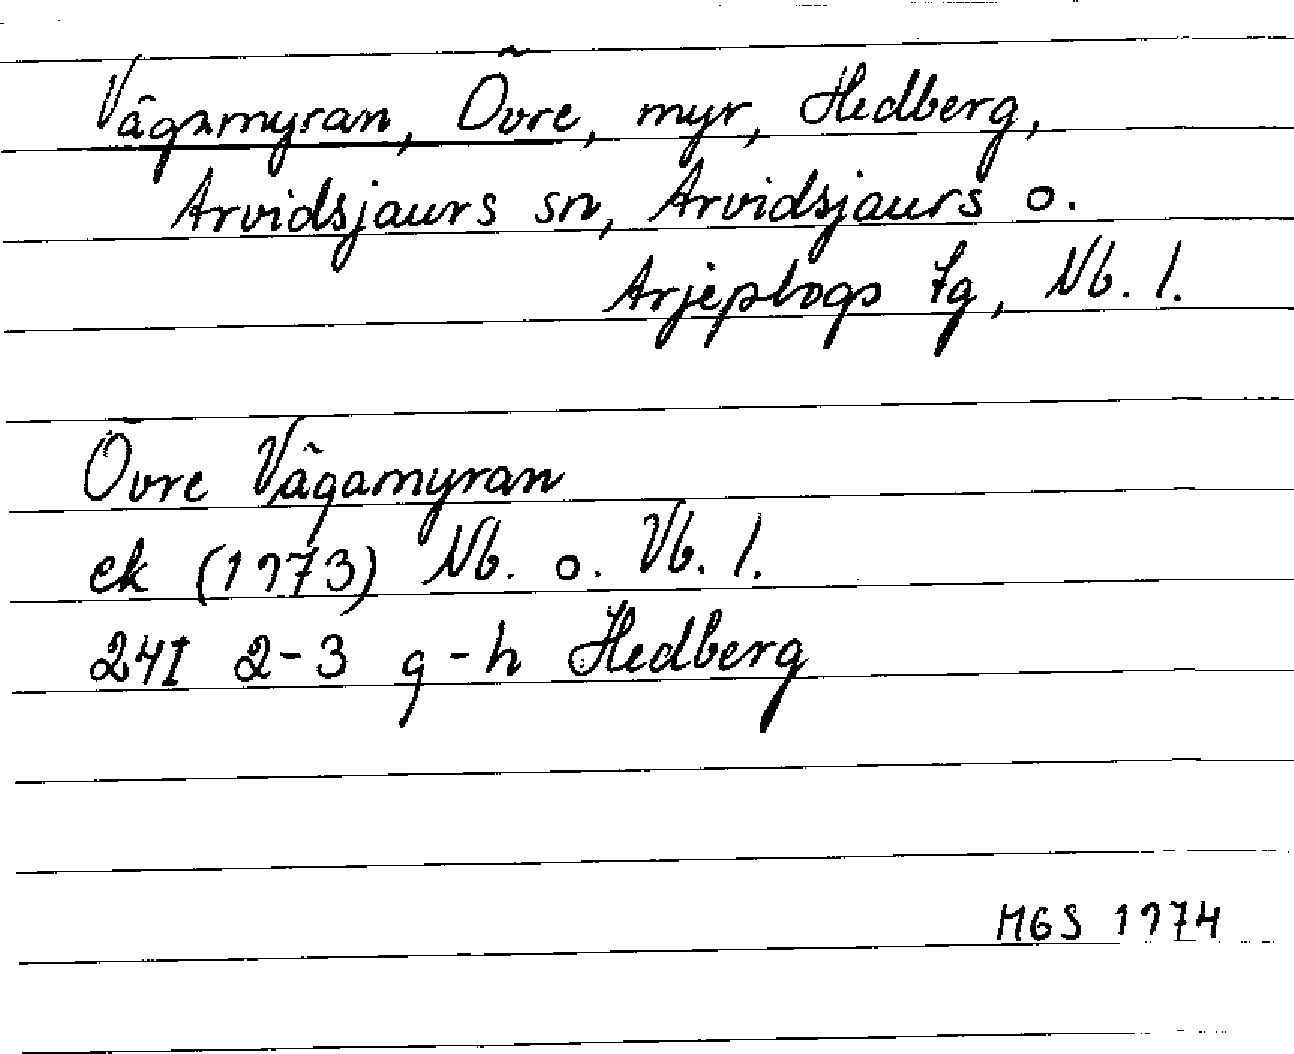 Vägamyran, Övre, myr, Hedberg,
Arvidsjaurs sn, Arvidsjaurs o.
Arjeplogs tg, Nb. l.
Övre Vägamyran
ek (1973) Nb. o. Vb. l.
24I 2-3 g-h Hedberg
MGS 1974